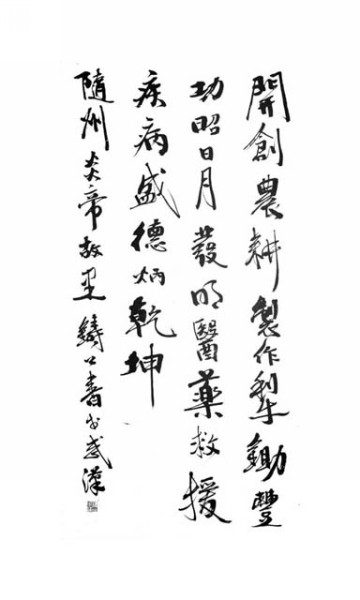 開創農耕製作犁鋤豐
功昭日月發明醫藥救援
疾病盛德炳乾坤
隨州炎帝故里 鑄公書於武漢